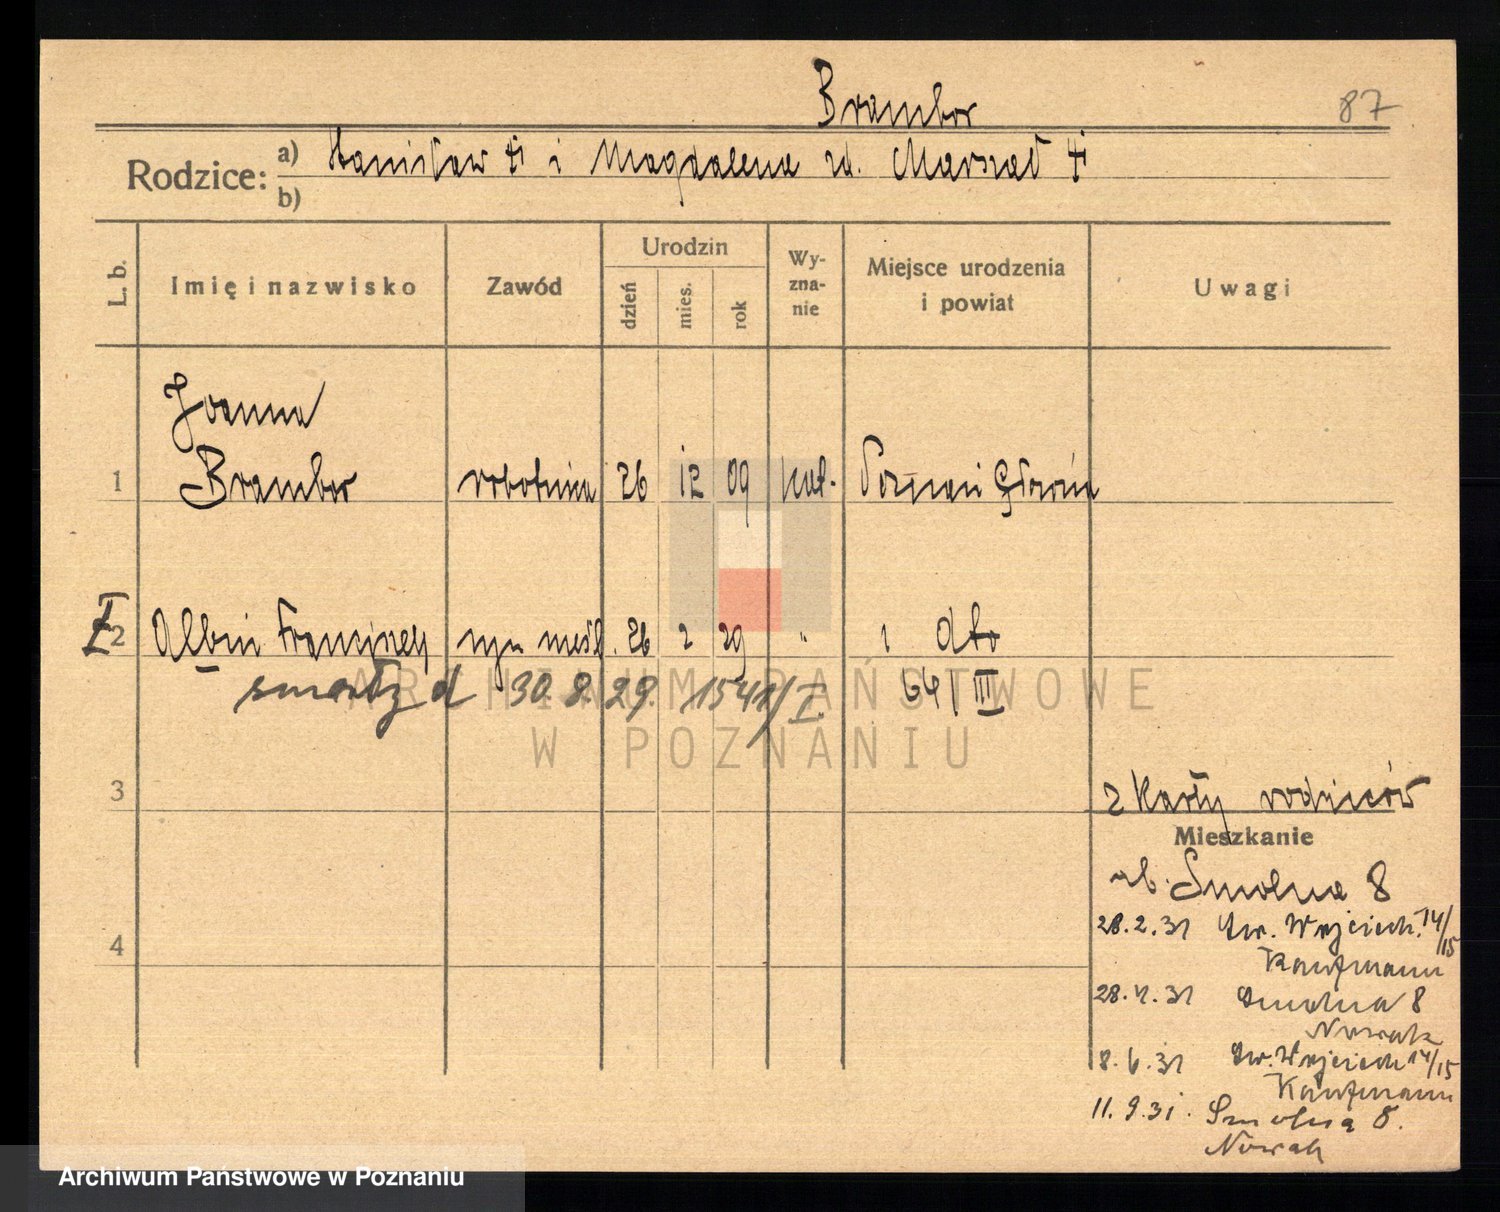 Brambor
87
Rodzice:
a) Stanisław i Magdalena zd. Marszał
b)
L. b.
Imię i nazwisko
Zawód
Urodzin
dzień
mies.
rok
Wy-
zna-
nie
Miejsce urodzenia
i powiat
Uwagi
Joanna
1 Brambor robotnica 26 12 09 kat. Poznań Główna
I 2 Albin Franciszek syn nieśl. 26 2 29 " dto
zmarł d 30.8.29. 1541/I. 64/III
3
z karty rodziców
Mieszkanie
ob. Smolna 8
28.2.31 Św. Wojciech 14/15
Kaufmann
28.4.31 Smolna 8
Nowak
8.6.31 Św. Wojciech 14/15
Kaufmann
11.9.31. Smolna 8.
Nowak
4
ARCHIWUM PAŃSTWOWE
W POZNANIU
Archiwum Państwowe w Poznaniu